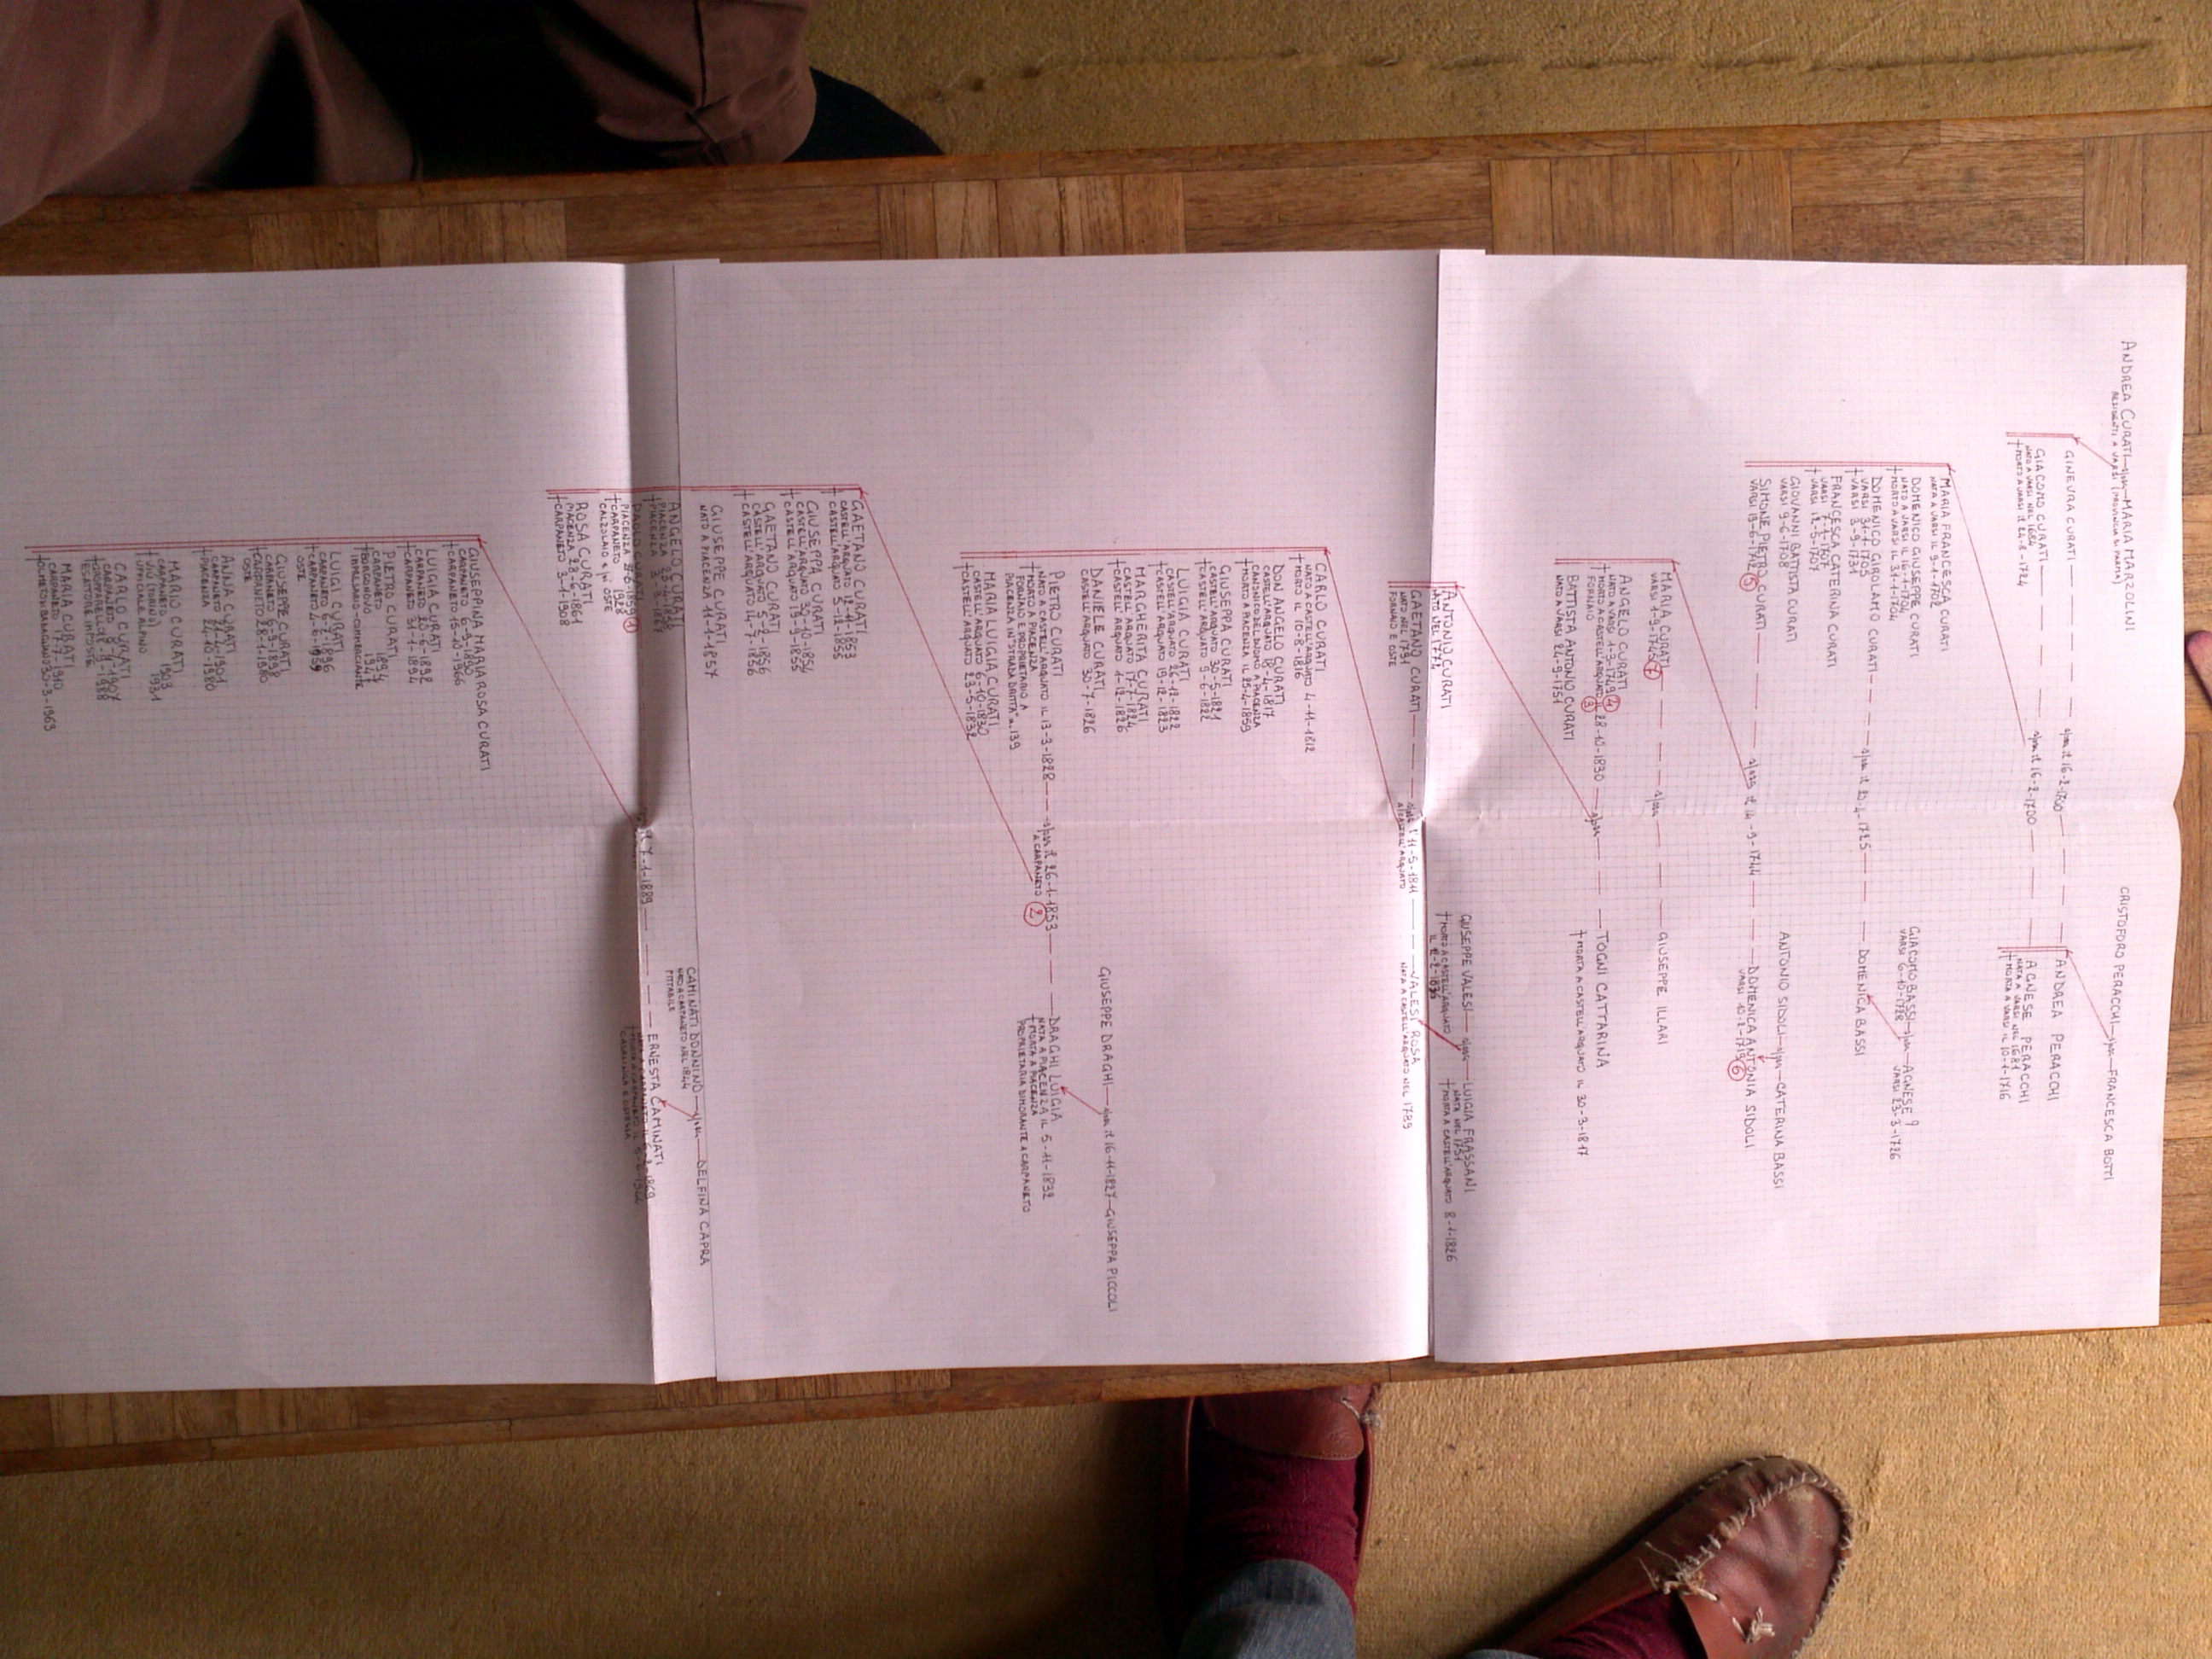 ANDREA CURATI—sposa—MARIA MARZOLINI
RESIDENTI A VARSI (PROVINCIA DI PARMA)
CRISTOFORO PERACCHI—sposa—FRANCESCA BOTTI
GINEVRA CURATI — sposa il 16-2-1700 — ANDREA PERACCHI
GIACOMO CURATI — sposa il 16-2-1700 — AGNESE PERACCHI
NATO A VARSI NEL 1684
†MORTO A VARSI il 24-8-1724
NATA A VARSI NEL 1681
†MORTA A VARSI IL 10-1-1716
MARIA FRANCESCA CURATI
NATA A VARSI IL 9-1-1702
DOMENICO GIUSEPPE CURATI
NATO A VARSI IL 16-1-1704
†MORTO A VARSI IL 31-1-1704
GIACOMO BASSI—sposa—AGNESE ?
VARSI 6-10-1728
VARSI 23-3-1726
DOMENICO GIROLAMO CURATI — sposa il 20-4-1725 — DOMENICA BASSI
VARSI 31-1-1705
†VARSI 3-9-1731
FRANCESCA CATERINA CURATI
VARSI 7-1-1707
†VARSI 12-5-1707
GIOVANNI BATTISTA CURATI
VARSI 9-6-1708
ANTONIO SIDOLI—sposa—CATERINA BASSI
SIMONE PIETRO CURATI — sposa il 14-9-1744 — DOMENICA ANTONIA SIDOLI
VARSI 19-6-1712 5
VARSI 10-2-1719 6
MARIA CURATI — sposa — GIUSEPPE ILLARI
VARSI 1-9-1745 7
ANGELO CURATI
NATO A VARSI 1-3-1749 4
†MORTO A CASTELL'ARQUATO IL 28-10-1830 — sposa — TOGNI CATTARINA
FORNAIO 3
†MORTA A CASTELL'ARQUATO IL 30-3-1817
BATTISTA ANTONIO CURATI
NATO A VARSI 24-9-1751
GIUSEPPE VALESI — sposa — LUIGIA FRASSANI
NATA NEL 1751
†MORTO A CASTELL'ARQUATO
†MORTA A CASTELL'ARQUATO 8-1-1826
IL 2-2-1836
ANTONIO CURATI
NATO NEL 1774
GAETANO CURATI — sposa l'11-5-1811 — VALESI ROSA
A CASTELL'ARQUATO
NATO NEL 1791
NATA A CASTELL'ARQUATO NEL 1789
FORNAIO E OSTE
CARLO CURATI
NATO A CASTELL'ARQUATO 4-11-1812
†MORTO IL 10-8-1816
DON ANGELO CURATI
CASTELL'ARQUATO 18-4-1817
CANONICO DEL DUOMO A PIACENZA
†MORTO A PIACENZA IL 25-4-1859
GIUSEPPA CURATI
CASTELL'ARQUATO 30-5-1821
†CASTELL'ARQUATO 9-6-1822
LUIGIA CURATI
CASTELL'ARQUATO 26-12-1822
†CASTELL'ARQUATO 19-12-1823
MARGHERITA CURATI
CASTELL'ARQUATO 17-7-1824
†CASTELL'ARQUATO 1-12-1826
DANIELE CURATI
CASTELL'ARQUATO 30-7-1826
GIUSEPPE DRAGHI — sposa il 16-11-1827 — GIUSEPPA PICCOLI
PIETRO CURATI
NATO A CASTELL'ARQUATO IL 13-3-1828 — sposa il 26-1-1853 — DRAGHI LUIGIA
A CARPANETO 2
NATA A PIACENZA IL 5-11-1832
†MORTO A PIACENZA
†MORTA A PIACENZA
FORNAIO E PROPRIETARIO A
PROPRIETARIA DIMORANTE A CARPANETO
PIACENZA IN "STRADA DRITTA" n. 139
MARIA LUIGIA CURATI
CASTELL'ARQUATO 6-10-1830
†CASTELL'ARQUATO 23-5-1832
GAETANO CURATI
CASTELL'ARQUATO 12-11-1853
†CASTELL'ARQUATO 5-12-1855
GIUSEPPA CURATI
CASTELL'ARQUATO 30-10-1854
†CASTELL'ARQUATO 19-9-1855
GAETANO CURATI
CASTELL'ARQUATO 5-2-1856
†CASTELL'ARQUATO 14-7-1856
GIUSEPPE CURATI
NATO A PIACENZA 11-1-1857
CAMINATI DONNINO — sposa — DELFINA CAPRA
NATO A CARPANETO NEL 1844
FITTABILE
ANGELO CURATI
PIACENZA 23-4-1858
†PIACENZA 3-3-1867
PAOLO CURATI — il 7-1-1889 — ERNESTA CAMINATI
PIACENZA 1859 1
NATA A CARPANETO IL 6-2-1869
†MORTA A CARPANETO IL 5-6-1944
CASALINGA E OSTESSA
†CARPANETO 1928
CALZOLAIO e poi OSTE
ROSA CURATI
PIACENZA 28-6-1861
†CARPANETO 3-1-1908
GIUSEPPINA MARIA ROSA CURATI
CARPANETO 6-9-1890
†CARPANETO 15-10-1966
LUIGIA CURATI
CARPANETO 20-6-1892
†CARPANETO 31-1-1894
PIETRO CURATI
CARPANETO 1894
†BORGONOVO 1947
IMPRESARIO-COMMERCIANTE
LUIGI CURATI
CARPANETO 6-7-1896
†CARPANETO 4-6-1959
OSTE
GIUSEPPE CURATI
CARPANETO 6-9-1898
†CARPANETO 28-1-1980
OSTE
ANNA CURATI
CARPANETO 21-4-1901
†PIACENZA 24-10-1980
MARIO CURATI
CARPANETO 1903
†VIÙ (TORINO) 1931
UFFICIALE ALPINO
CARLO CURATI
CARPANETO 1907
†GROPPARELLO 18-9-1988
ESATTORE IMPOSTE
MARIA CURATI
CARPANETO 17-7-1910
†OLMETO DI BADAGNANO 30-3-1963